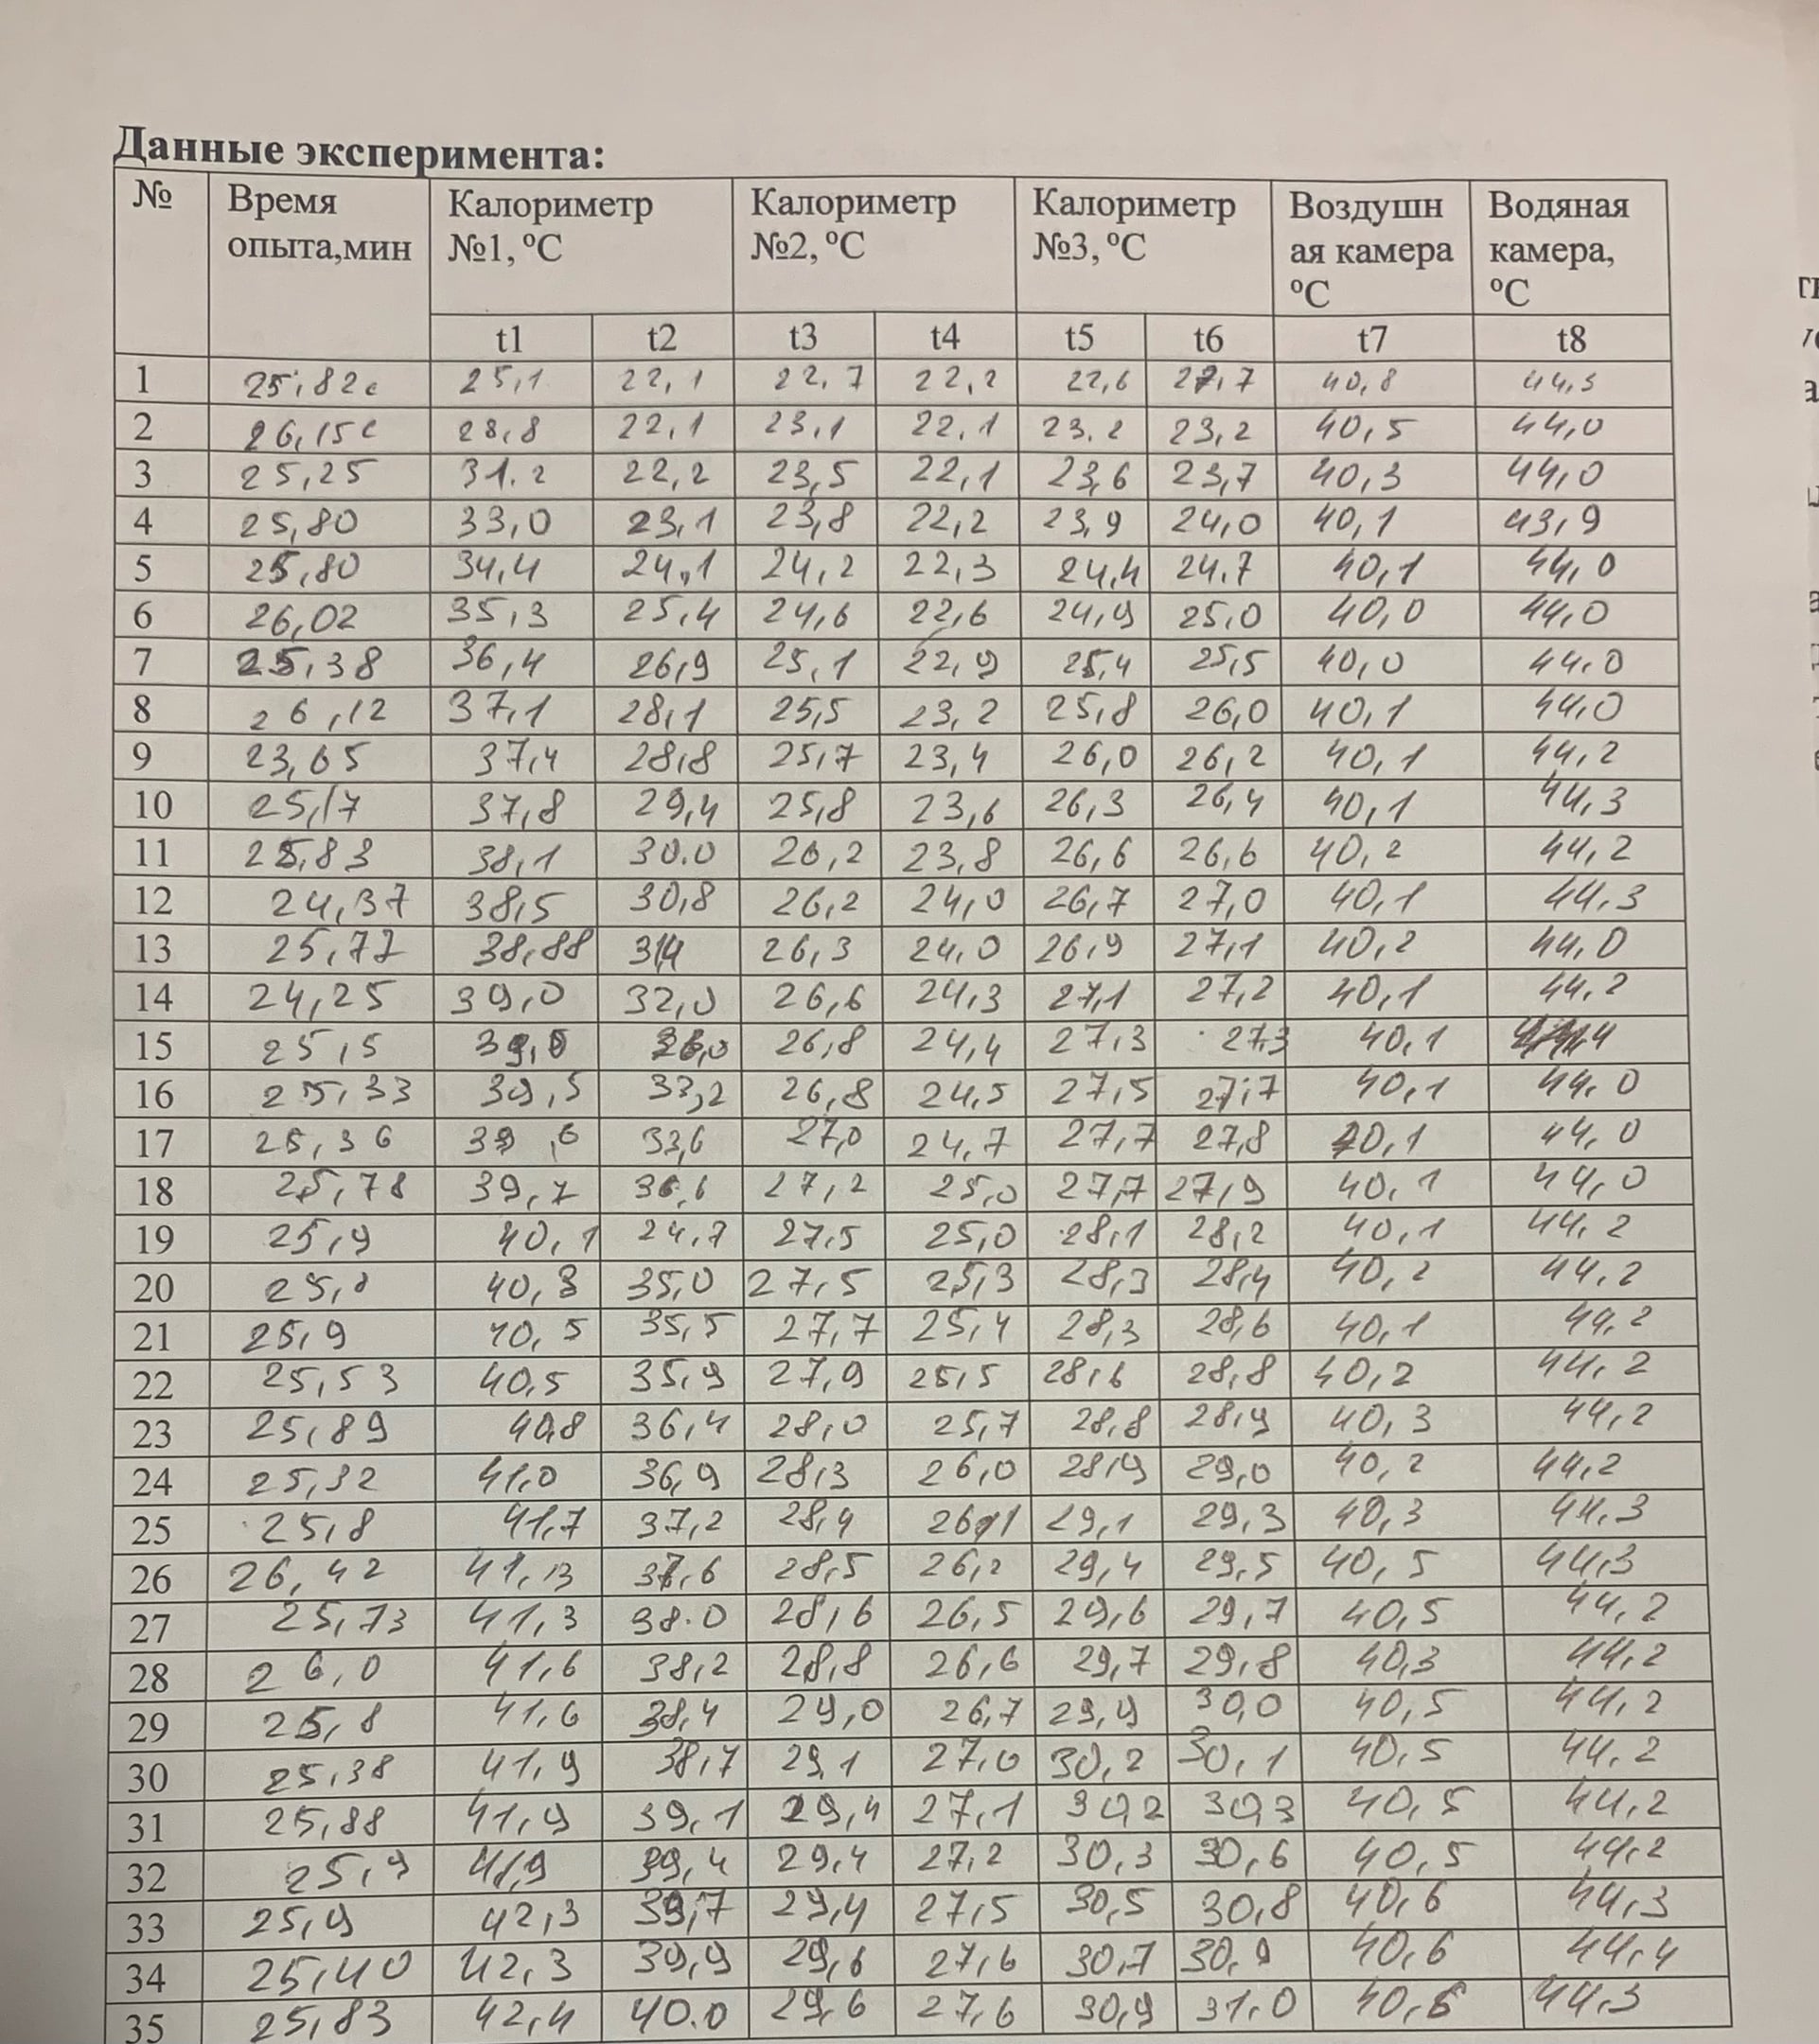 Данные эксперимента:
№ Время опыта,мин Калориметр №1, ºC Калориметр №2, ºC Калориметр №3, ºC Воздушная камера ºC Водяная камера, ºC
t1 t2 t3 t4 t5 t6 t7 t8
1 25,82с 25,1 22,1 22,7 22,2 22,6 22,7 40,8 44,3
2 26,15с 28,8 22,1 23,1 22,1 23.2 23,2 40,5 44,0
3 25,25 31.2 22,2 23,5 22,1 23,6 23,7 40,3 44,0
4 25,80 33,0 23,1 23,8 22,2 23,9 24,0 40,1 43,9
5 25,80 34,4 24,1 24,2 22,3 24,4 24.7 40,1 44,0
6 26,02 35,3 25,4 24,6 22,6 24,9 25,0 40,0 44,0
7 25,38 36,4 26,9 25,1 22,9 25,4 25,5 40,0 44,0
8 26,12 37,1 28,1 25,5 23,2 25,8 26,0 40,1 44,0
9 23,65 37,4 28,8 25,7 23,4 26,0 26,2 40,1 44,2
10 25,17 37,8 29,4 25,8 23,6 26,3 26,4 40,1 44,3
11 25,83 38,1 30.0 26,2 23,8 26,6 26,6 40,2 44,2
12 24,37 38,5 30,8 26,2 24,0 26,7 27,0 40,1 44,3
13 25,77 38,88 31,4 26,3 24,0 26,9 27,1 40,2 44,0
14 24,25 39,0 32,0 26,6 24,3 27,1 27,2 40,1 44,2
15 25,5 26,8 24,4 27,3 27,3 40,1
16 25,33 39,5 33,2 26,8 24,5 27,5 27,7 40,1 44,0
17 25,36 39,6 33,6 27,0 24,7 27,7 27,8 40,1 44,0
18 25,78 39,7 27,2 25,0 27,7 27,9 40,1 44,0
19 25,9 40,1 24,7 27,5 25,0 28,1 28,2 40,1 44,2
20 40,3 35,0 27,5 25,3 28,3 28,4 40,2 44,2
21 25,9 40,5 35,5 27,7 25,4 28,3 28,6 40,1 44,2
22 25,53 40,5 35,9 27,9 25,5 28,6 28,8 40,2 44,2
23 25,89 40,8 36,4 28,0 25,7 28,8 28,9 40,3 44,2
24 25,32 41,0 36,9 28,3 26,0 28,9 29,0 40,2 44,2
25 25,8 41,7 37,2 28,4 26,1 29,1 29,3 40,3 44,3
26 26,42 41,13 37,6 28,5 26,2 29,4 29,5 40,5 44,3
27 25,73 41,3 38.0 28,6 26,5 29,6 29,7 40,5 44,2
28 26,0 41,6 38,2 28,8 26,6 29,7 29,8 40,3 44,2
29 25,8 41,6 38,4 29,0 26,7 29,9 30,0 40,5 44,2
30 25,38 41,9 38,7 29,1 27,0 30,2 30,1 40,5 44,2
31 25,88 41,9 39,1 29,4 27,1 30,2 30,3 40,5 44,2
32 25,9 41,9 39,4 29,4 27,2 30,3 30,6 40,5 44,2
33 25,9 42,3 39,7 29,4 27,5 30,5 30,8 40,6 44,3
34 25,40 42,3 39,9 29,6 27,6 30,7 30,9 40,6 44,4
35 25,83 42,4 40.0 29,6 27,6 30,9 31,0 40,6 44.3